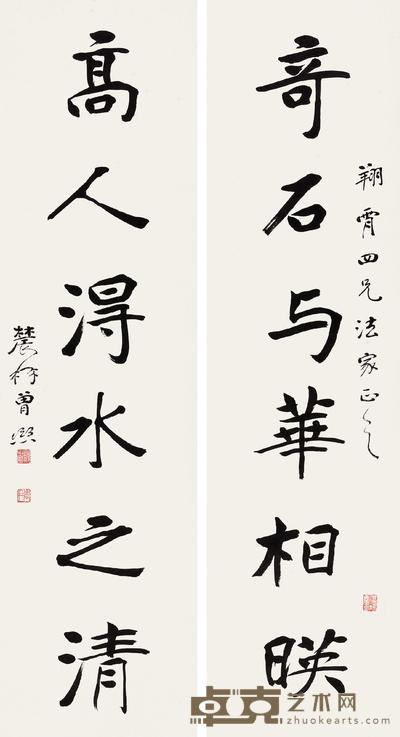 翔霄四兄法家正之
奇石与華相暎
高人得水之清
農髯曾熙
卓克艺术网
zhuokearts.com